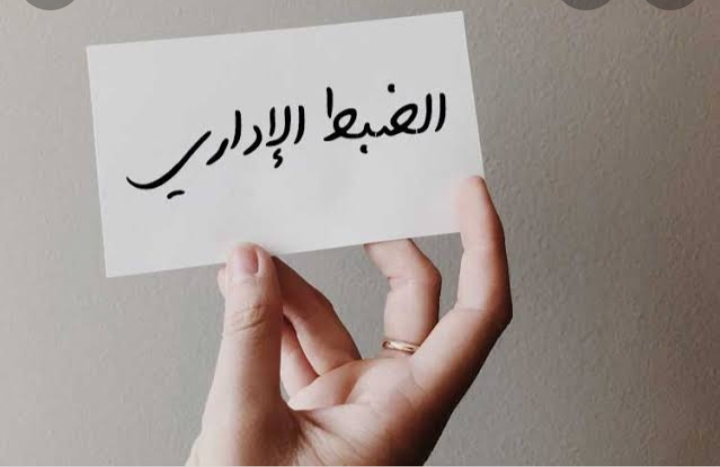 الضبط الإداري